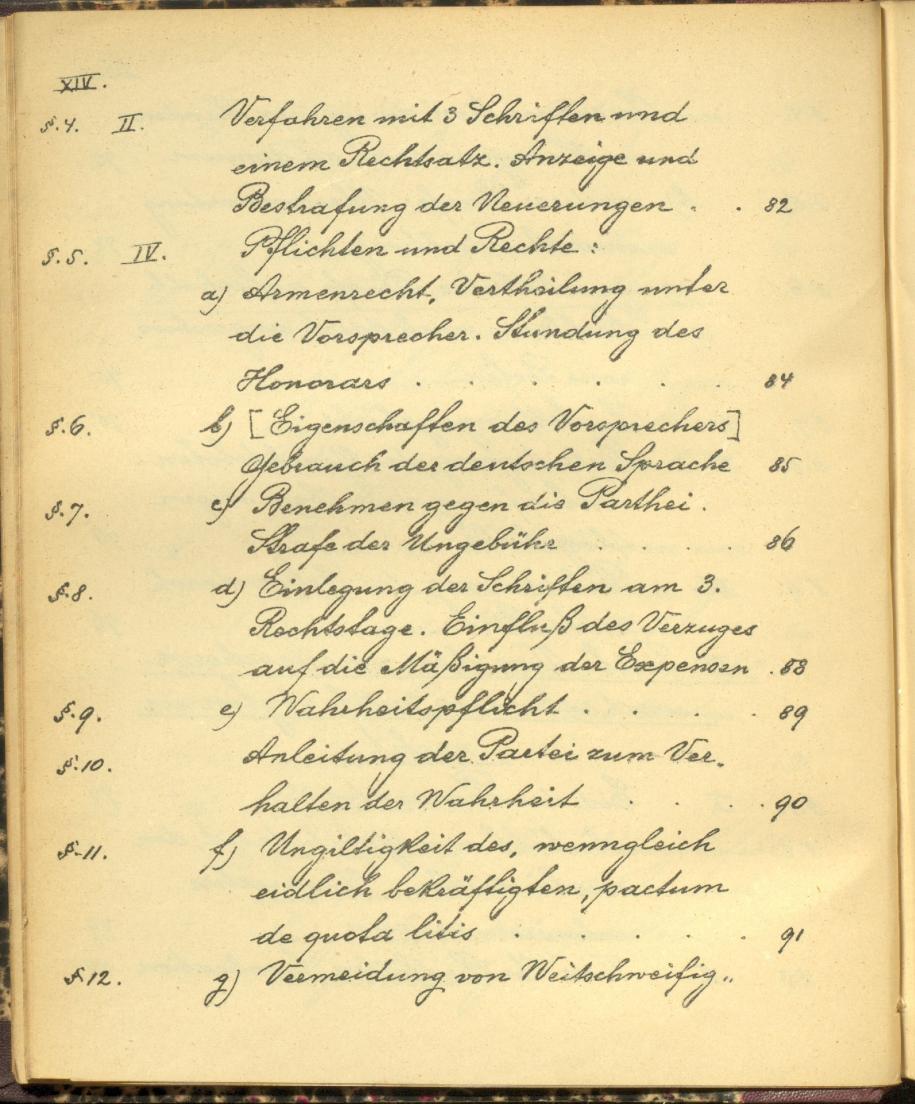 XIV.
§.4. II. Verfahren mit 3 Schriften und
einem Rechtsatz. Anzeige und
Bestrafung der Neuerungen . . 82
§.5. IV. Pflichten und Rechte:
a) Armenrecht, Vertheilung unter
die Vorsprecher. Stundung des
Honorars . . . . . . 84
§.6. b) [Eigenschaften des Vorsprechers]
Gebrauch der deutschen Sprache 85
§.7. c) Benehmen gegen die Parthei.
Strafe der Ungebühr . . . 86
§.8. d) Einlegung der Schriften am 3.
Rechtstage. Einfluß des Verzuges
auf die Mäßigung der Expensen . 88
§.9. e) Wahrheitspflicht . . . . 89
§.10. Anleitung der Partei zum Ver-
halten der Wahrheit . . . . 90
§.11. f) Ungiltigkeit des, wenngleich
eidlich bekräftigten, pactum
de quota litis . . . . . 91
§12. g) Vermeidung von Weitschweifig„